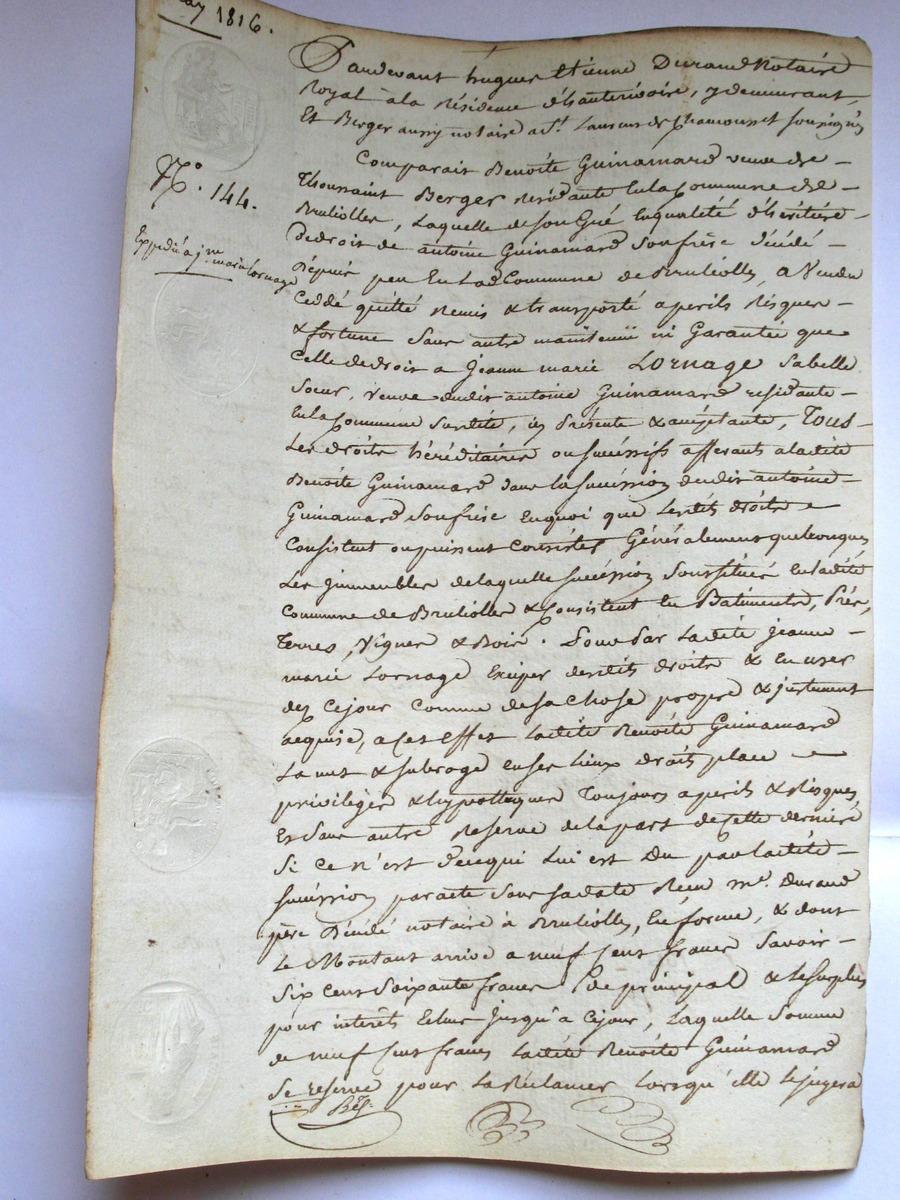 ay 1816.
N.º 144.
Expédié a j.ne marie Lornage
Pardevant hugues Etienne Durand Notaire
Royal à la résidence d'hauterivoire, y demeurant,
Et Berger aussy notaire a S.t Laurent de Chamousset soussignés
Comparait Benoîte Guinamard veuve de
Thoussaint Berger résidante En la Commune de
Brulioller, Laquelle de son Gré En qualité d'héritière
de droit de antoine Guinamard Son frère décédé
Dépuis peu En lad Commune de Brulioller, a Vendu
Ceddé quitté remis & transporté a perils risques
& fortune Sans autre maintenüe ni Garantie que
Celle de droit a Jeanne marie Lornage Sa belle
Soeur, veuve dudit antoine Guinamard residante
En la Commune Susdite, icy présente & acceptante, Tous
Les droits héréditaires ou successifs afferants a ladite
Benoîte Guinamard dans la succession dudit antoine
Guinamard Son frère En quoi que lesdits droits
Consistent ou puissent Consister Généralement quelconques
Les immeubles de laquelle succéssion Sont situés En ladite
Commune de Brulioller & Consistent En Batiments, Prés,
Terres, Vignes & Bois. Pour Par Ladite Jeanne
marie Lornage Exciper desdits droits & En user
dez Cejour Comme de sa Chose propre & justement
acquise, a Cet Effet Ladite Benoîte Guinamard
La met & subroge En ses Lieux droits place
privilèges & hypothèques Toujours a perils & Risques
Et Sans autre Reserve de la part de Cette dernière
Si ce n'est de ce qui Lui est Du par ladite
succéssion par acte Sous sa date Reçu M.e Durand
père Décédé notaire à Brulioller, En forme, & dont
Le Montant arrive a neuf Cent francs Savoir
Six Cent Soixante francs de principal & Le surplus
pour interêts Echus jusqu'a Cejour, Laquelle Somme
de neuf Cent francs Ladite Benoîte Guinamard
Se reserve pour La Réclamer Lorsqu'elle le jugera